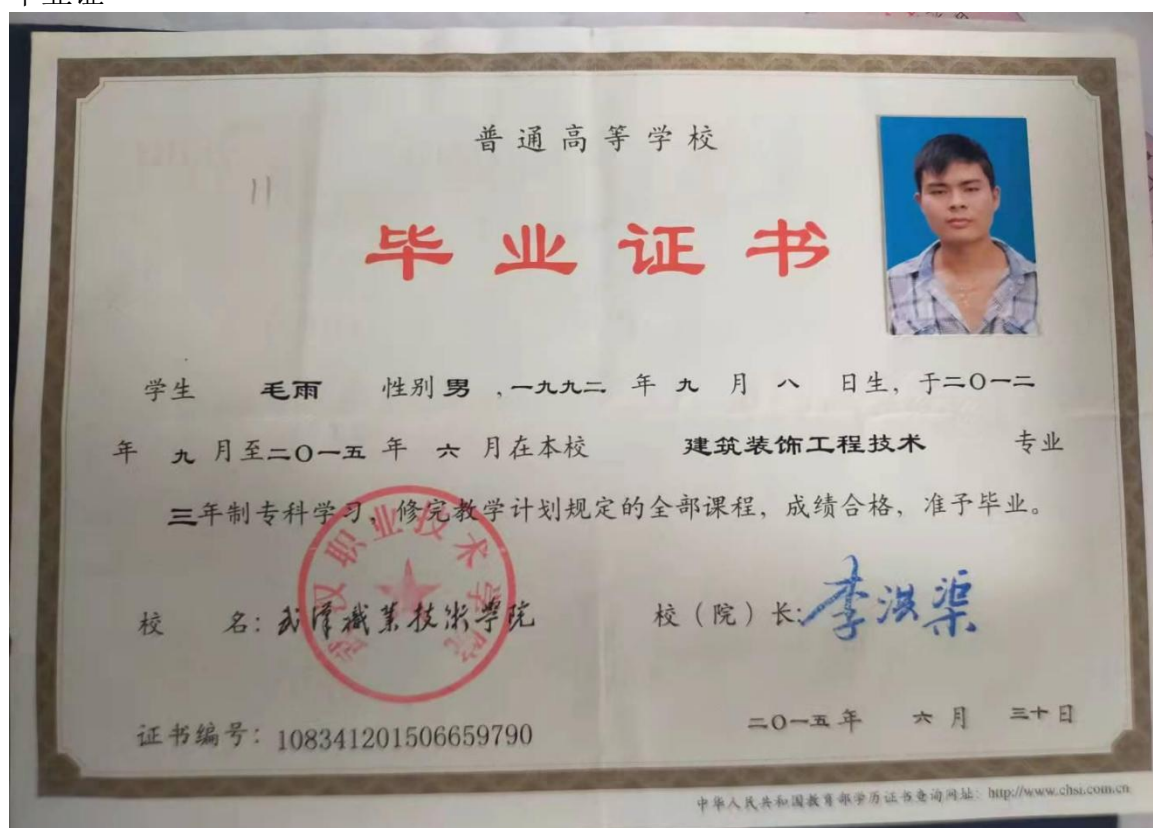 普通高等学校
毕业证书
学生 毛雨 性别 男 ,一九九二 年 九 月 八 日生, 于二〇一二
年 九 月至二〇一五 年 六 月在本校 建筑装饰工程技术 专业
三年制专科学习, 修完教学计划规定的全部课程, 成绩合格, 准予毕业。
武汉职业技术学院
校 名: 武漢職業技術學院 校(院)长: 李洪渠
证书编号: 108341201506659790 二〇一五 年 六 月 三十 日
中华人民共和国教育部学历证书查询网址: http://www.chsi.com.cn